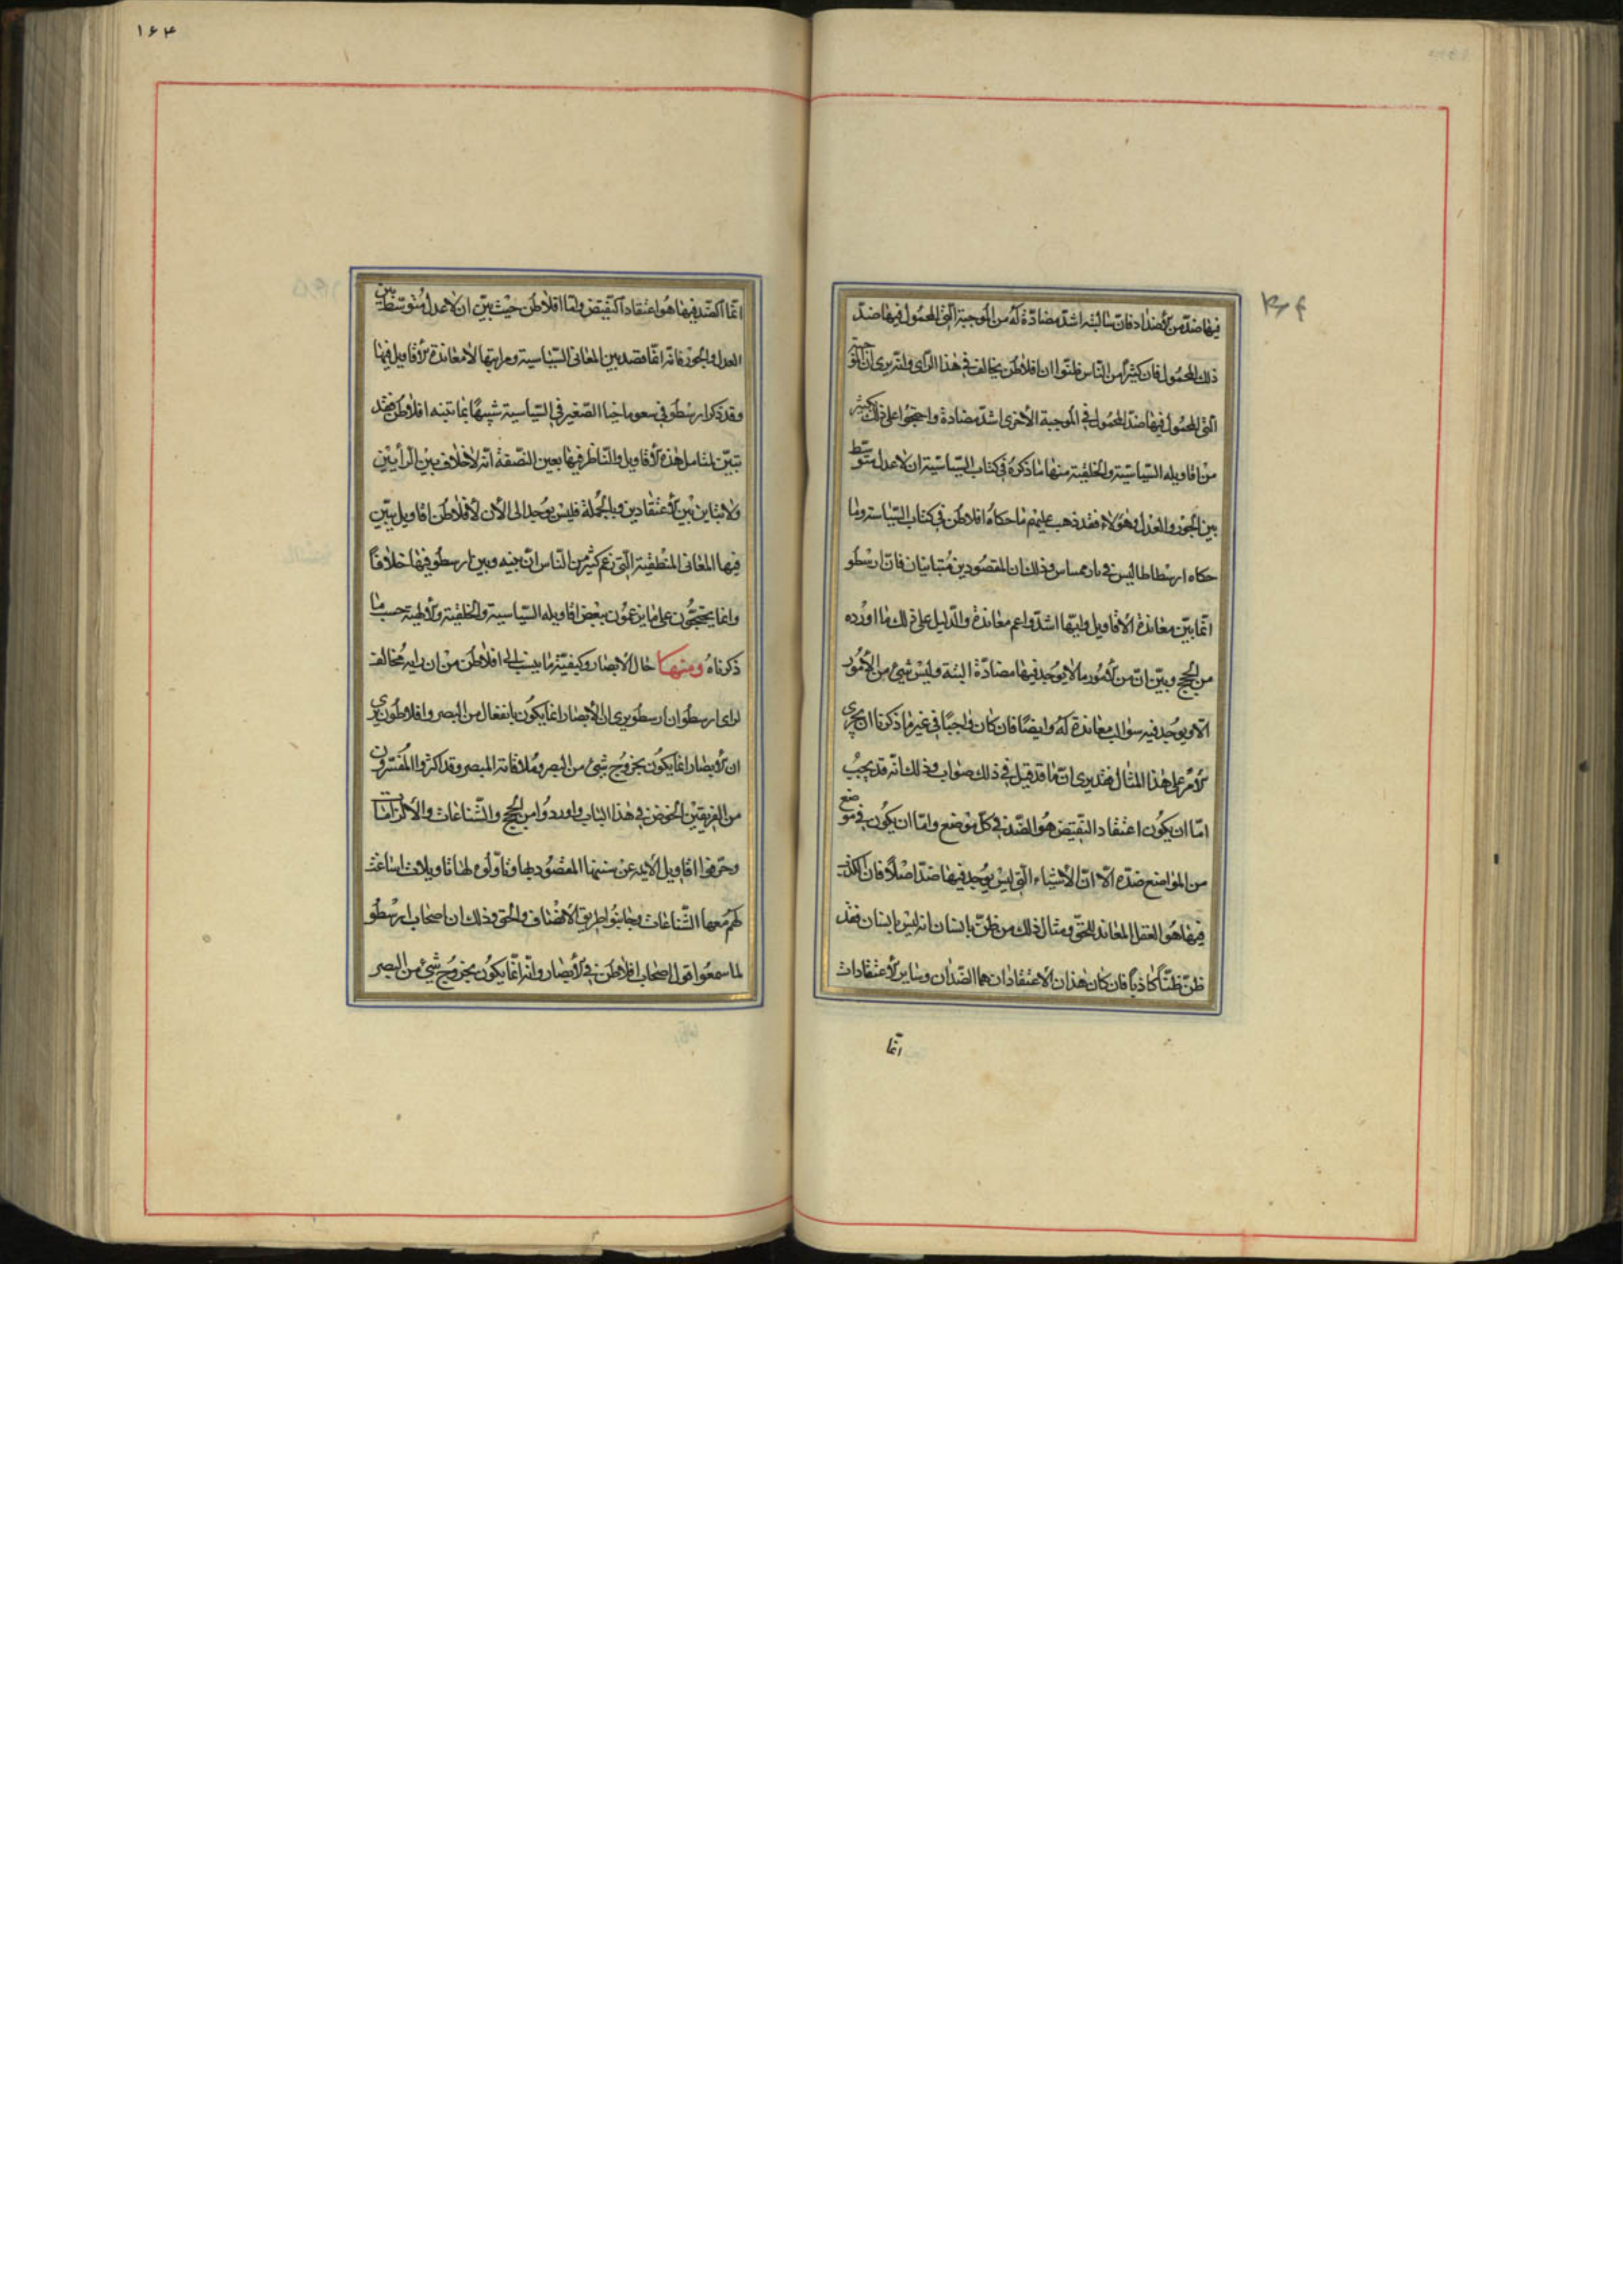 فيها ضد من الأضداد فان سالبته اشد مضادة له من الموجبة التى المحمول فيها ضد
ذلك المحمول فان كثيرا من الناس ظنوا ان افلاطن يخالفه فى هذا الرأى وانه يرى ان الموجبة
التى المحمول فيها ضد المحمول فى الموجبة الاخرى اشد مضادة واحتجوا على ذلك بكثير
من اقاويله السياسية والخلقية منها ما ذكره فى كتاب السياسية ان الاعدل متوسط
بين الجور والعدل وهؤلاء فقد ذهب عليهم ما حكاه افلاطن فى كتاب السياسة وما
حكاه ارسطاطاليس فى بارمميناس وذلك ان المقصودين متباينان فان ارسطو
انما بين معاندة الاقاويل وانها اشد واعم معاندة والدليل على ذلك ما اورده
من الحجج وبين ان من الأمور ما لا يوجد فيها مضادة البتة وليس شئ من الأمور
الا ويوجد فيه سوالب معاندة له وايضا فان كان واجبا فى غير ما ذكرنا ان يجرى
الأمر على هذا المثال فقد يرى ان ما قد قيل فى ذلك صواب وذلك انه قد يجب
اما ان يكون اعتقاد النقيض هو الضد فى كل موضع واما ان يكون فى موضع
من المواضع ضده الا ان الاشياء التى ليس يوجد فيها ضد اصلا فان الكذب
فيها هو العقل المعاند للحق ومثال ذلك من ظن بانسان انه ليس بانسان فقد
ظن ظنا كاذبا فان كان هذان الاعتقادان هما الضدان وساير الاعتقادات
انما
١٦٤
انما الضد فيها هو اعتقاد النقيض واما افلاطن حيث بين ان الاعدل متوسط بين
العدل والجور فانه انما قصد بين المعانى السياسية ومراتبها لا معاندة الأقاويل فيها
وقد ذكر ارسطو فى نيقوماخيا الصغير فى السياسية شبيها بما بينه افلاطن فقد
تبين لمتأمل هذه الأقاويل والناظر فيها بعين النصفة انه لاخلاف بين الرأيين
ولا تباين بين الأعتقادين وبالجملة فليس يوجد الى الآن لأفلاطن اقاويل يبين
فيها المعانى المنطقية التى زعم كثير من الناس ان بينه وبين ارسطو فيها خلافا
وانما يحتجون على ما يزعمون ببعض اقاويله السياسية والخلقية والألهية حسب ما
ذكرناه ومنها حال الابصار وكيفيته وما ينسب الى افلاطن من ان رايه مخالف
لراى ارسطو ان ارسطو يرى ان الأبصار انما يكون بانفعال من البصر وافلاطون يرى
ان الأبصار انما يكون بخروج شئ من البصر وملاقاته المبصر وقد اكثروا المفسرون
من الفريقين الخوض فى هذا الباب واوردوا من الحجج والشناعات والالزامات
وحرفوا اقاويل الايمه عن سننها المقصود بها وتأولوه لها تأويلات انساغت
لهم معها الشناعات وجانبوا طريق الأنصاف والحق وذلك ان اصحاب ارسطو
لما سمعوا قول اصحاب افلاطن فى الأبصار وانه انما يكون بخروج شئ من البصر